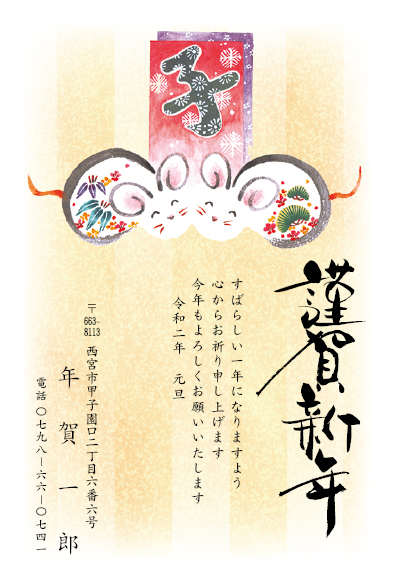 子
謹賀新年
すばらしい一年になりますよう
心からお祈り申し上げます
今年もよろしくお願いいたします
令和二年　元旦
〒663-8113
西宮市甲子園口二丁目六番六号
年賀一郎
電話〇七九八ー六六ー〇七四一